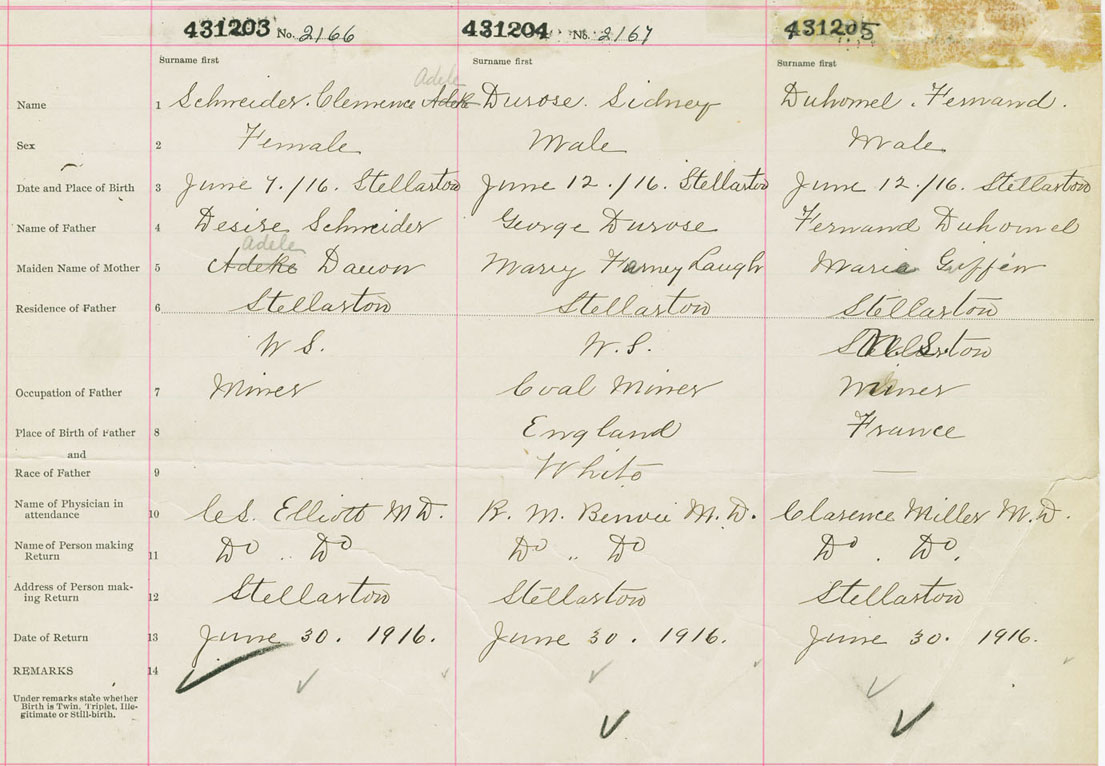 431203 No. 2166 431204 No. 2167 431205
Surname first Surname first Surname first
Adele
Name 1 Schneider. Clemence Adele Durose. Sidney Duhomel. Fernand.
Sex 2 Female Male Male
Date and Place of Birth 3 June 7./16. Stellarton June 12./16. Stellarton June 12./16. Stellarton
Name of Father 4 Desire Schneider George Durose Fernand Duhomel
Adele
Maiden Name of Mother 5 Mary Farney Laugh Maria Giffen
Residence of Father 6 Stellarton Stellarton Stellarton
N.S. N.S. Stellarton N.S.
Occupation of Father 7 Miner Coal Miner Miner
Place of Birth of Father 8 England France
and
Race of Father 9 White —
Name of Physician in
attendance 10 C.S. Elliott M.D. R. M. Benvie M.D. Clarence Miller M.D.
Name of Person making
Return 11 Do .. Do Do .. Do Do . Do.
Address of Person mak-
ing Return 12 Stellarton Stellarton Stellarton
Date of Return 13 June 30. 1916. June 30. 1916. June 30. 1916.
REMARKS 14
Under remarks state whether
Birth is Twin, Triplet, Ille-
gitimate or Still-birth.